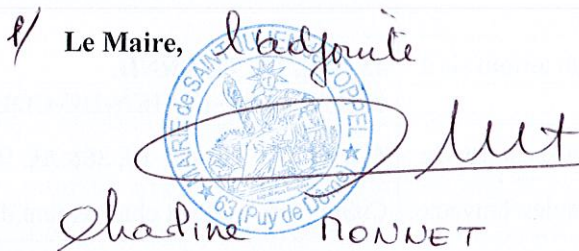 P/ Le Maire, l'adjointe
MAIRIE de SAINT-JULIEN-DE-COPPEL
★ 63 (Puy de Dôme) ★
MONNET